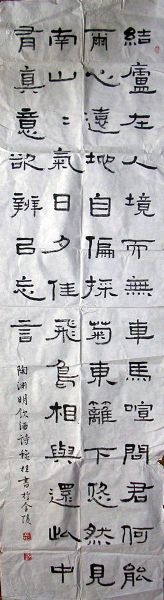 結廬在人境而無車馬喧問君何能
爾心遠地自偏採菊東籬下悠然見
南山〻氣日夕佳飛鳥相與還此中
有真意欲辨已忘言
陶淵明飲酒詩 書於金陵